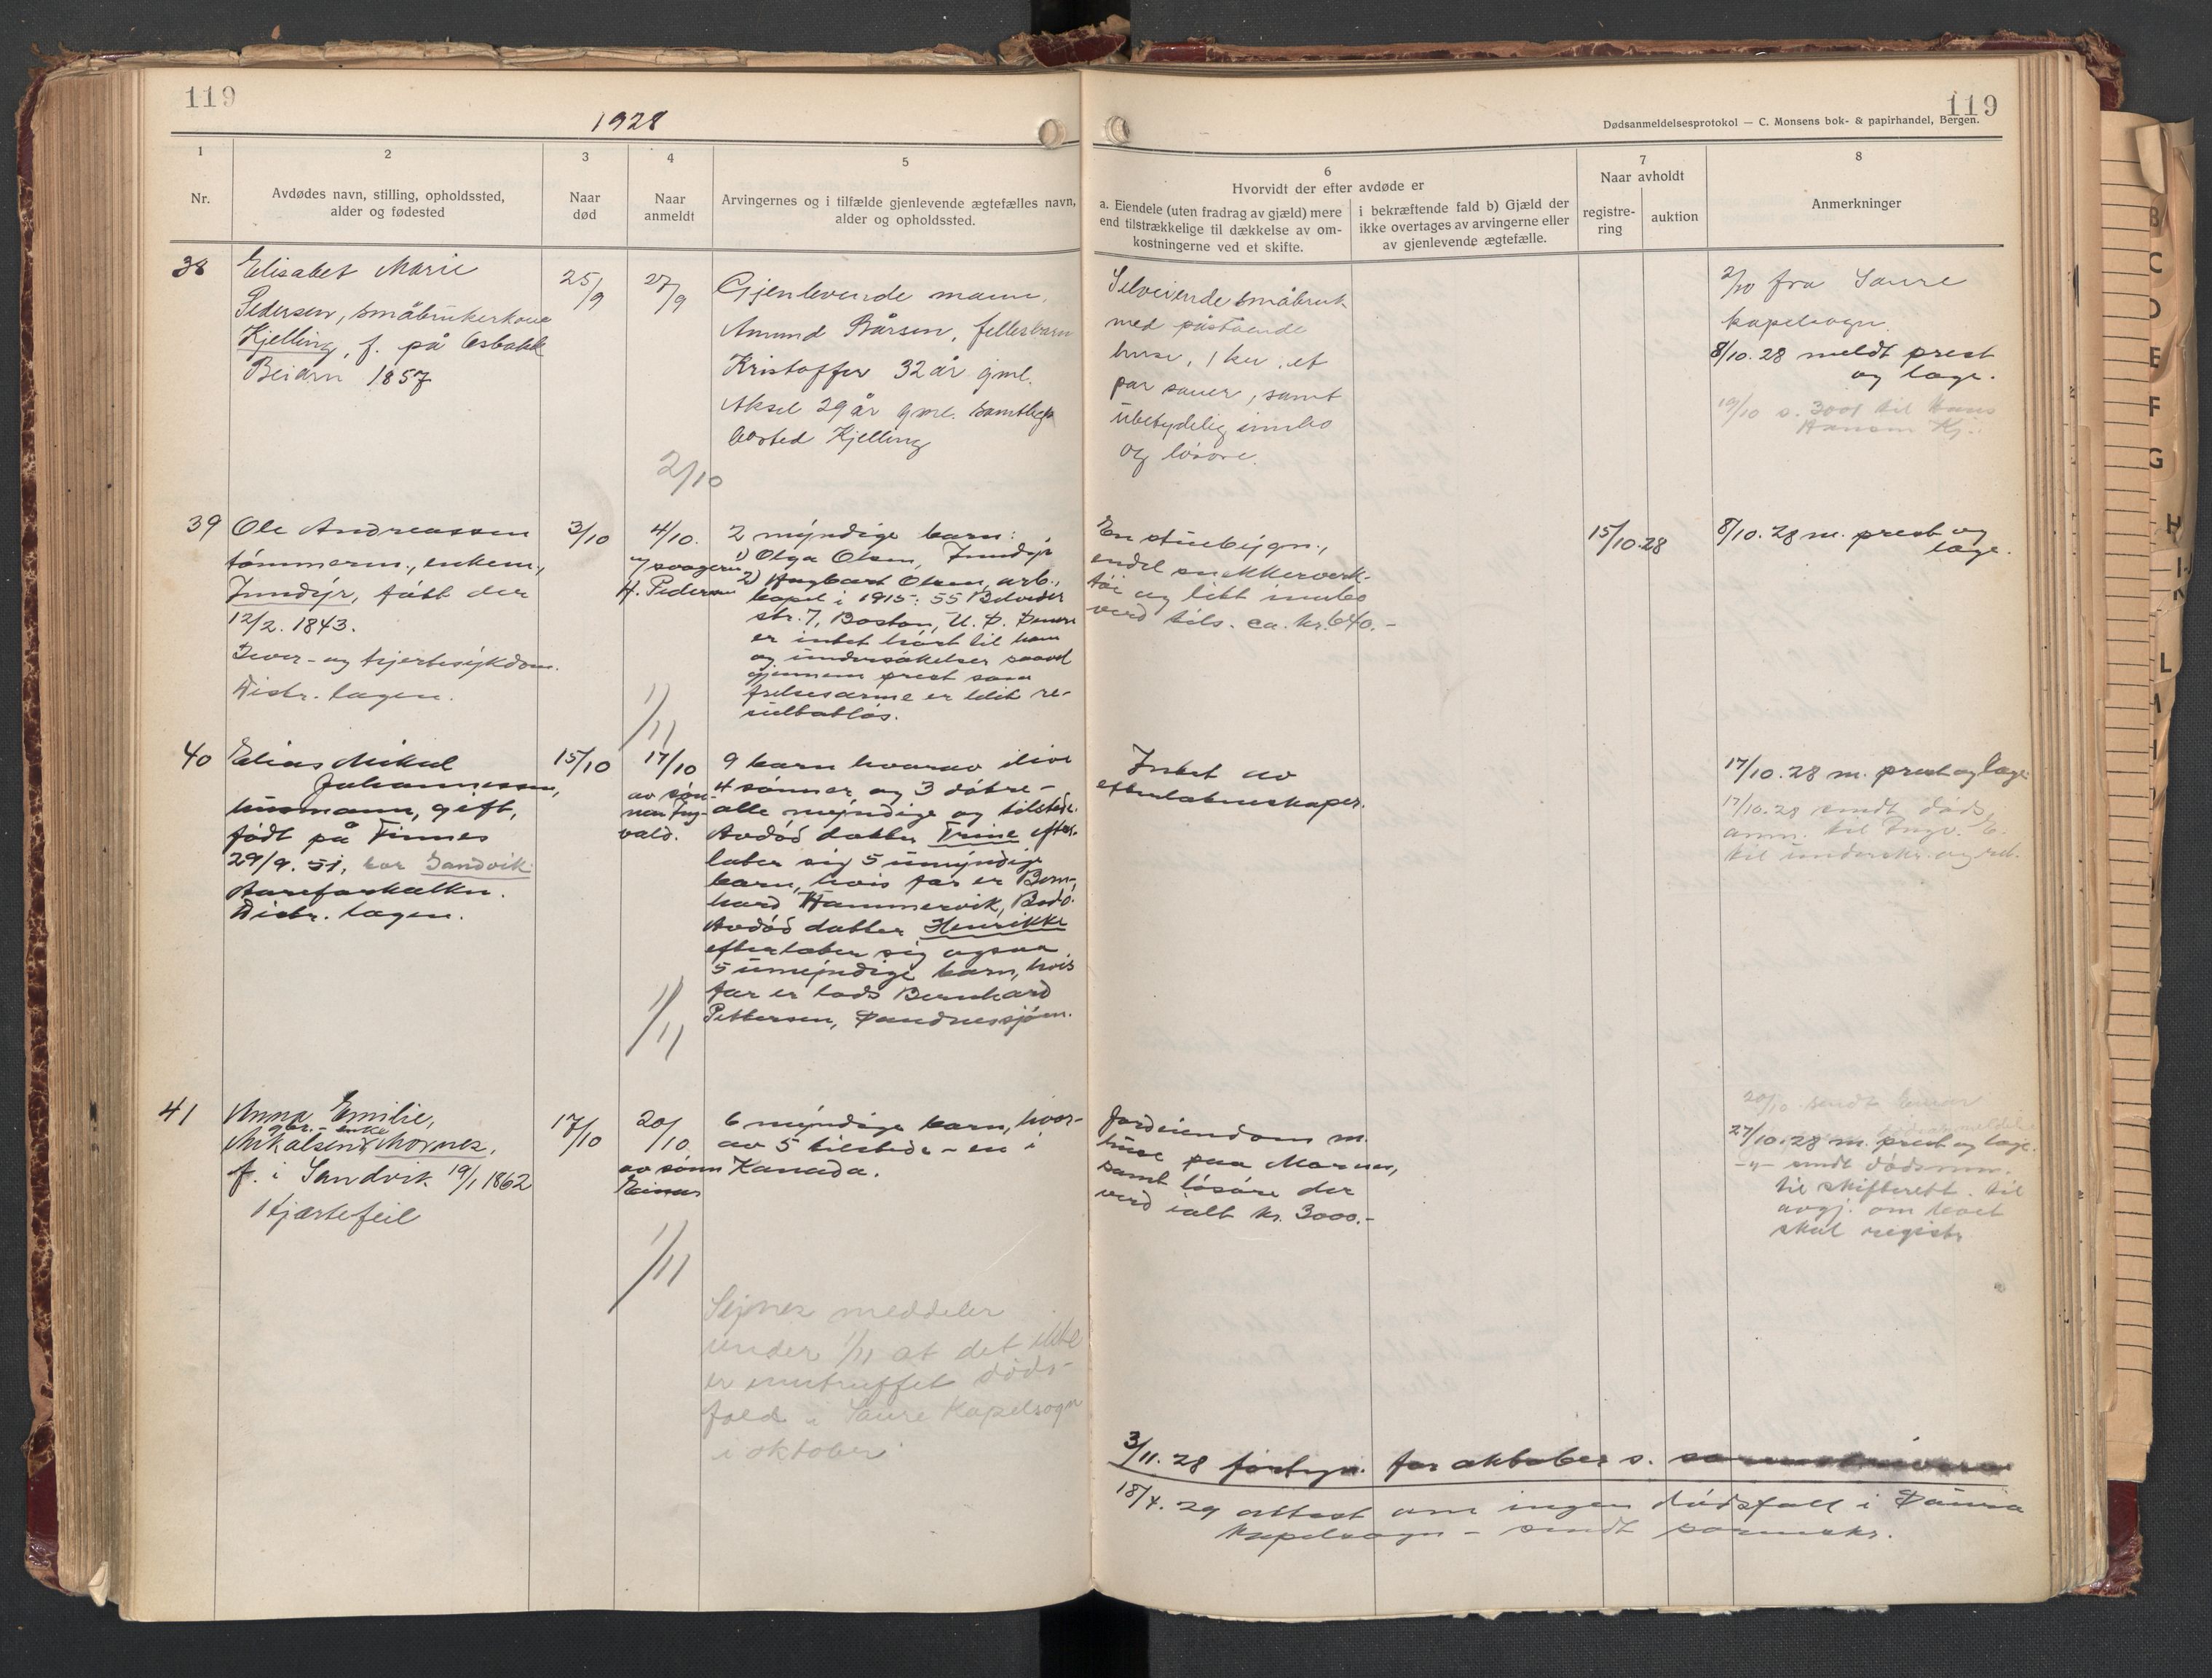 119
1928
119
Dødsanmeldelsesprotokol — C. Monsens bok- & papirhandel, Bergen.
1
Nr.
2
Avdødes navn, stilling, opholdssted,
alder og fødested
3
Naar
død
4
Naar
anmeldt
5
Arvingernes og i tilfælde gjenlevende ægtefælles navn,
alder og opholdssted.
6
Hvorvidt der efter avdøde er
a. Eiendele (uten fradrag av gjæld) mere
end tilstrækkelige til dækkelse av om-
kostningerne ved et skifte.
i bekræftende fald b) Gjæld der
ikke overtages av arvingerne eller
av gjenlevende ægtefælle.
7
Naar avholdt
registre-
ring
auktion
8
Anmerkninger
38
Elisabet Marie
Pedersen, småbrukerkone
Kjelling, f. på Osbakk
Beiarn 1857
25/9
27/9
Gjenlevende mann,
Amund Bårsen, fellesbarn
Kristoffer 32 år gml.
Aksel 29 år gml. samtlige
bosted Kjelling
2/10
Selveiende småbruk
med påstående
huse, 1 ku, et
par sauer, samt
ubetydelig innbo
og løsøre.
2/10 fra Saure
kapelsogn.
8/10. 28 meldt prest
og læge.
19/10 s. 3001 til Hans
Hansen Kj.
39
Ole Andreassen
tømmerm., enkem.,
Inndyr, født der
12/2. 1843.
Lever- og hjertesykdom.
Distr. lægen.
3/10
4/10.
v/ svogeren
H. Pedersen
2 myndige barn:
1) Olga Olsen, Inndyr
2) Hagbart Olsen, arb.,
bopel i 1915: 55 Belvider
str. 7, Boston, U. S. Senere
er intet hørt til ham
og undersøkelser saavel
gjennem prest som
frelsesarme er blit re-
sultatløs.
1/11
En stuebygn.,
endel snekkerverk-
tøi og litt innbo
verd tils. ca. kr. 640.-
15/10.28
8/10. 28 m. prest og
læge.
40
Elias Mikal
Johannessen,
husmann, gift,
født på Finnes
29/9. 51, bor Sandvik
Aareforkalkn.
Distr. lægen.
15/10
17/10
av søn-
nen Ing-
vald.
9 barn hvorav ilive
4 sønner og 3 døtre -
alle myndige og tilstede.
Avdød datter Trine efter-
later sig 5 umyndige
barn, hvis far er Bern-
hard Hammervik, Bodø.
Avdød datter Henrikke
efterlater sig ogsaa
5 umyndige barn, hvis
far er lods Bernhard
Pettersen, Sandnessjøen.
1/11
Intet av
efterlatenskaper.
17/10. 28 m. prest og læge.
17/10. 28 sendt døds
anm. til Ingv. E.
til underskr. og ret.
41
Anna Emilie,
gbr.- enke
Mikalsen, Mornes.
f. i Sandvik 19/1 1862
Hjærtefeil
17/10
20/10
av sønn
Einar
6 myndige barn, hvor-
av 5 tilstede - en i
Kanada.
1/11
Jordeiendom m.
huse paa Mornes,
samt løsøre der
verd ialt kr. 3000.-
20/10. sendt Einar
dødsanmeldelse
27/10. 28 m. prest og læge.
-"- sendt dødsanm.
til skifterett. til
avgj. om boet
skal registr.
Signes meddeler
under 1/11 at det ikke
er inntruffet døds-
fald i Saure Kapelsogn
i oktober.
3/11. 28 fortegn. for oktober s.
18/4. 29 attest om ingen dødsfall i Saura
kapelsogn - sendt sorenskr.